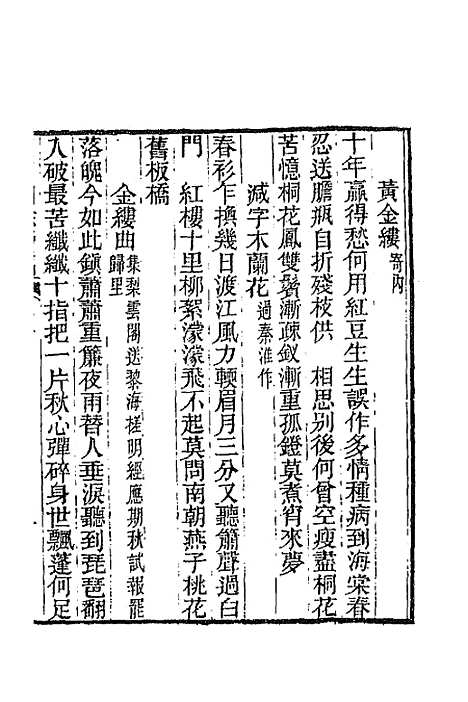 黃金縷寄內
十年贏得愁何用紅豆生生誤作多情種病到海棠春
忍送膽瓶自折殘枝供　相思別後何曾空瘦盡桐花
苦憶桐花鳳雙鬢漸疎釵漸重孤鐙莫煮宵來夢
減字木蘭花過秦淮作
春衫乍換幾日渡江風力輭眉月三分又聽簫聲過白
門　紅樓十里柳絮濛濛飛不起莫問南朝燕子桃花
舊板橋
金縷曲集梨雲閣送黎海槎明經應期秋試報罷歸里
落魄今如此鎮蕭蕭重簾夜雨替人垂淚聽到琵琶翻
入破最苦纖纖十指把一片秋心彈碎身世飄蓬何足